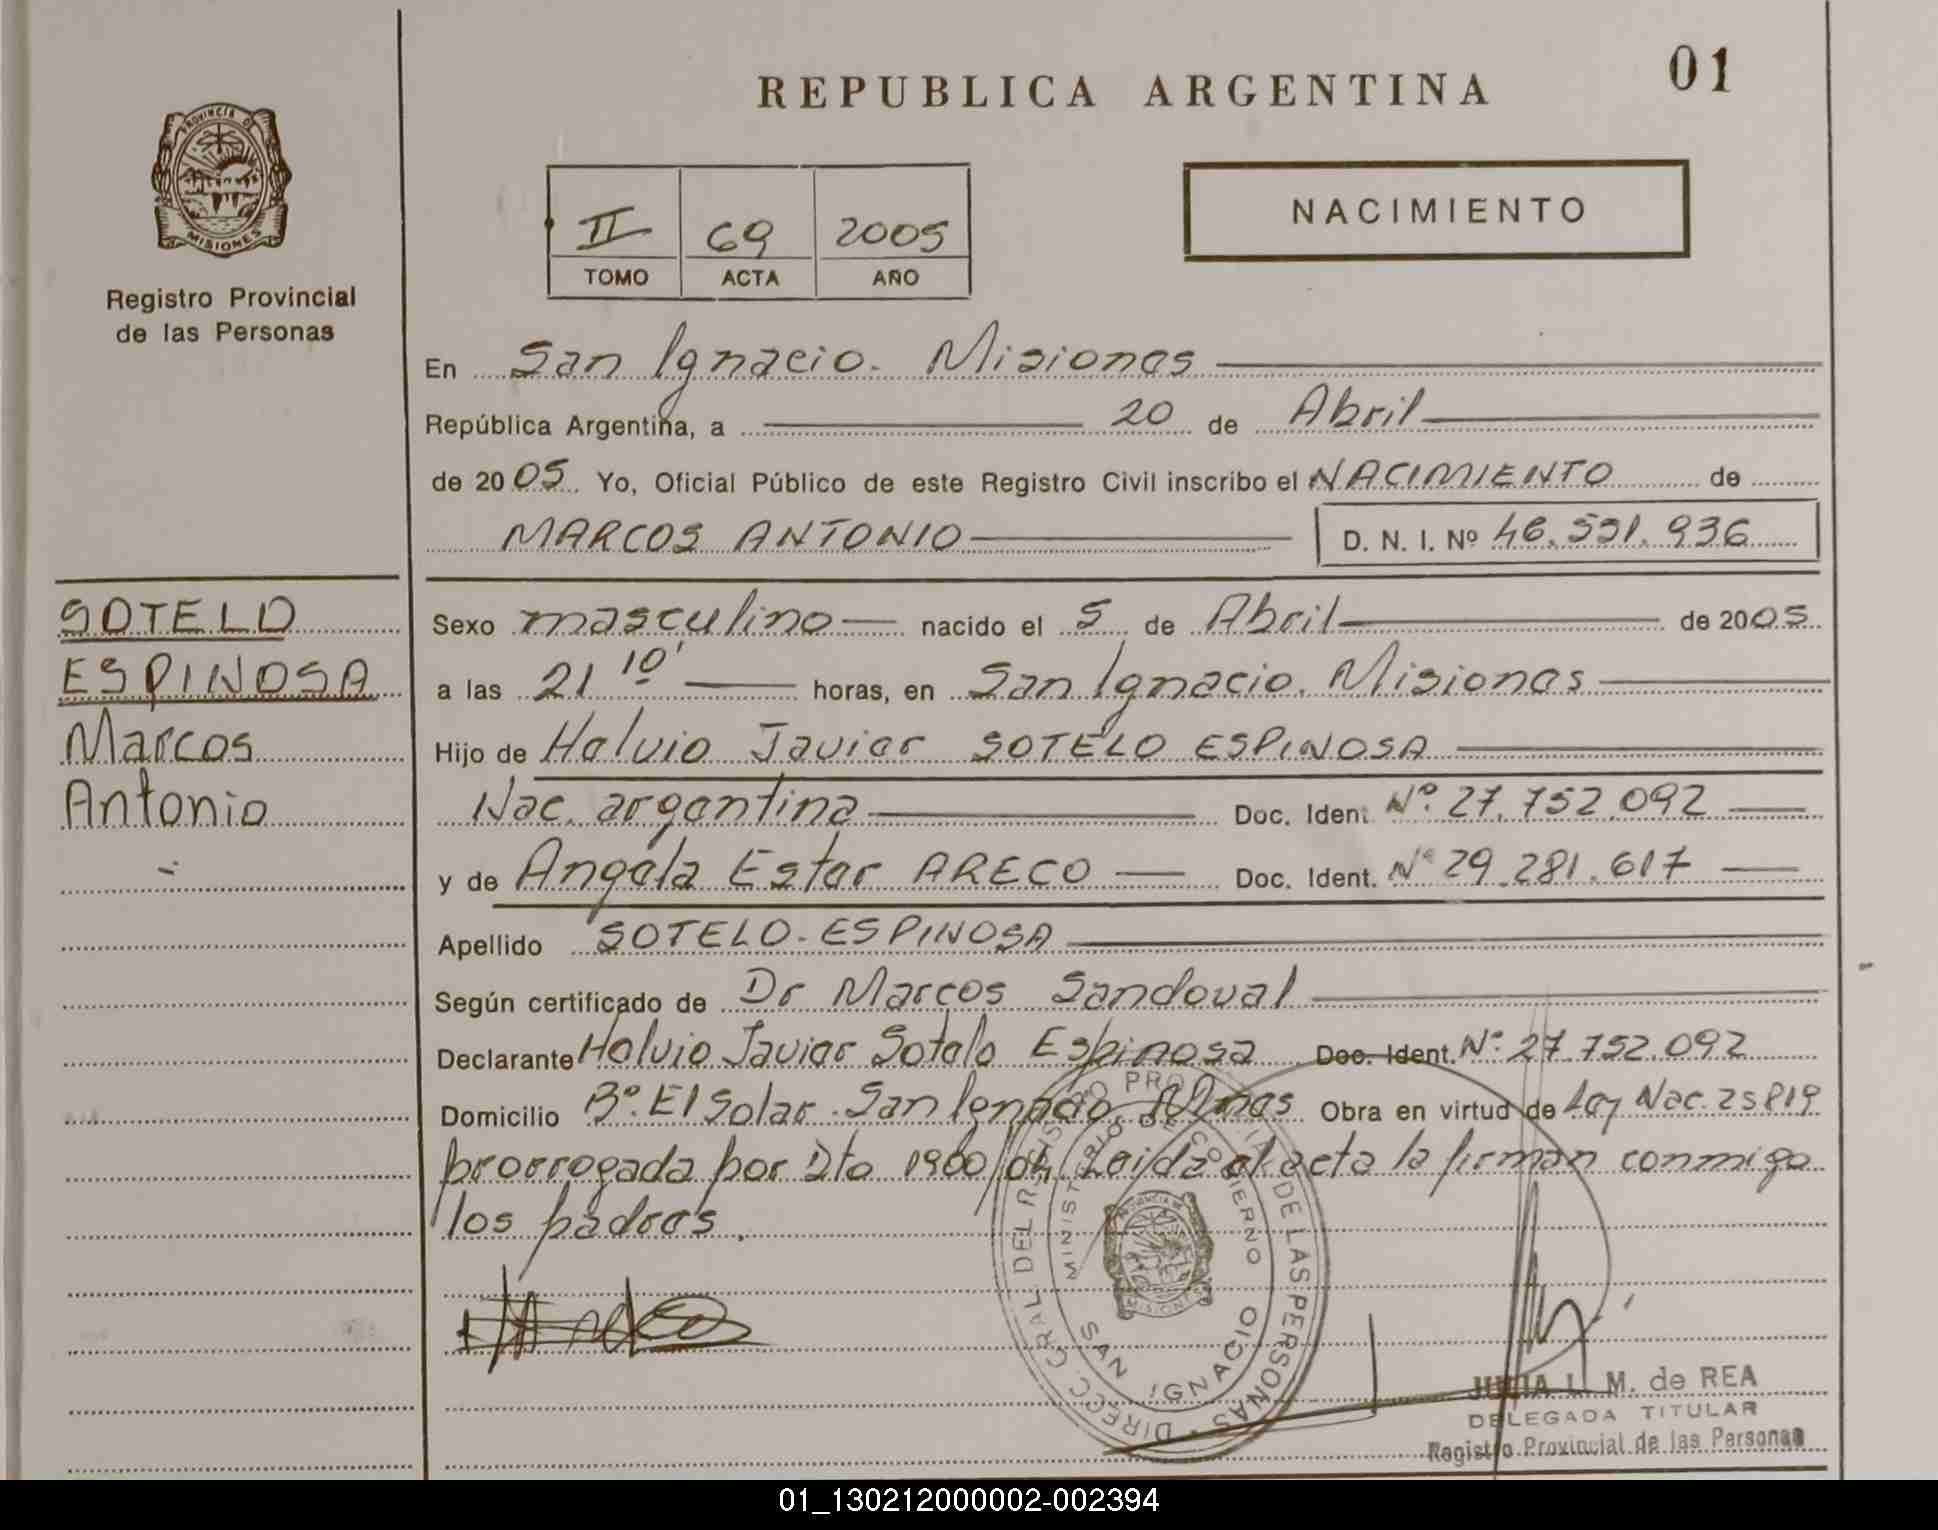 REPUBLICA ARGENTINA
01
PROVINCIA DE
MISIONES
Registro Provincial
de las Personas
II 69 2005
TOMO ACTA AÑO
NACIMIENTO
En San Ignacio. Misiones
República Argentina, a 20 de Abril
de 2005. Yo, Oficial Público de este Registro Civil inscribo el NACIMIENTO de
MARCOS ANTONIO D. N. I. Nº 46.531.936
SOTELO
ESPINOSA
Marcos
Antonio
Sexo masculino nacido el 5 de Abril de 2005
a las 21 10' horas, en San Ignacio. Misiones
Hijo de Helvio Javier SOTELO ESPINOSA
Nac. argentina Doc. Ident. Nº 27.752.092
y de Angela Ester ARECO Doc. Ident. Nº 29.281.617
Apellido SOTELO-ESPINOSA
Según certificado de Dr Marcos Sandoval
Declarante Helvio Javier Sotelo Espinosa Doc. Ident. Nº 27.752.092
Domicilio Bº. El Solar. San Ignacio. Mnes Obra en virtud de Ley Nac. 25819
prorrogada por Dto 1900/04. Leida el acta la firman conmigo
los padres.
DIREC. GRAL. DEL REGISTRO PROVINCIAL DE LAS PERSONAS
MINISTERIO DE GOBIERNO
MISIONES
SAN IGNACIO
JULIA L. M. de REA
DELEGADA TITULAR
Registro Provincial de las Personas
01_130212000002-002394